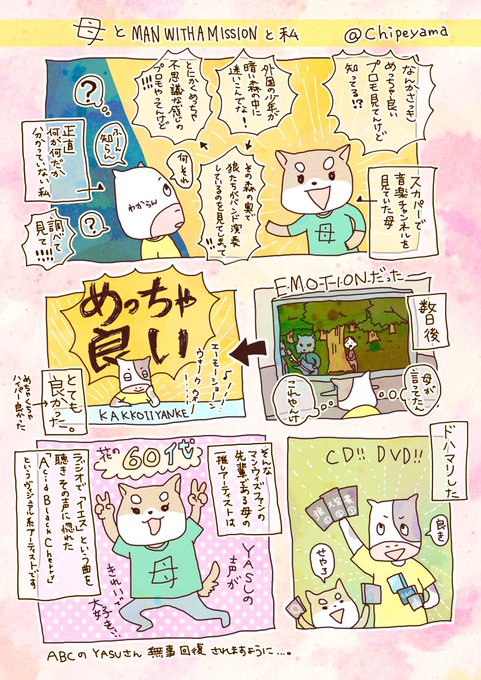 母とMAN WITH A MISSIONと私
@Chipeyama
なんかさっき
めっちゃ良い
プロモ見てんけど
知ってる!?
外国の少年が
暗い森の中に
迷いこんでな!
とにかくめっちゃ
不思議な感じの
プロモやってんけど
!!!
その森の奥で
狼たちがバンド演奏
しているのを見てしまって
!!!
スカパーで
音楽チャンネルを
見ていた母
母
何それ
わからん
?
ふーん
知らん
正直
何が何だか
分かっていない私
?
調べて
見て!!!
EMOTIONだったー
数日後
母が
言ってたん
これやんけ
めっちゃ
良い
エーモーション
ウォウウォウ
KAKKOIIYANKE
とても
良かった。
めちゃくちゃ
ハイパー良かった
ドハマりした
CD!! DVD!!
良き
せやろ
そんな
マンウィズファンの
先輩である母の
推しアーティストは、
花の60代
母
YASUの
声が
きれいで
大好き…
ラジオで「イエス」という曲を
聴きその声に惚れた
「Acid Black Cherry」
というヴィジュアル系アーティストです
ABCのYASUさん無事回復されますように…。